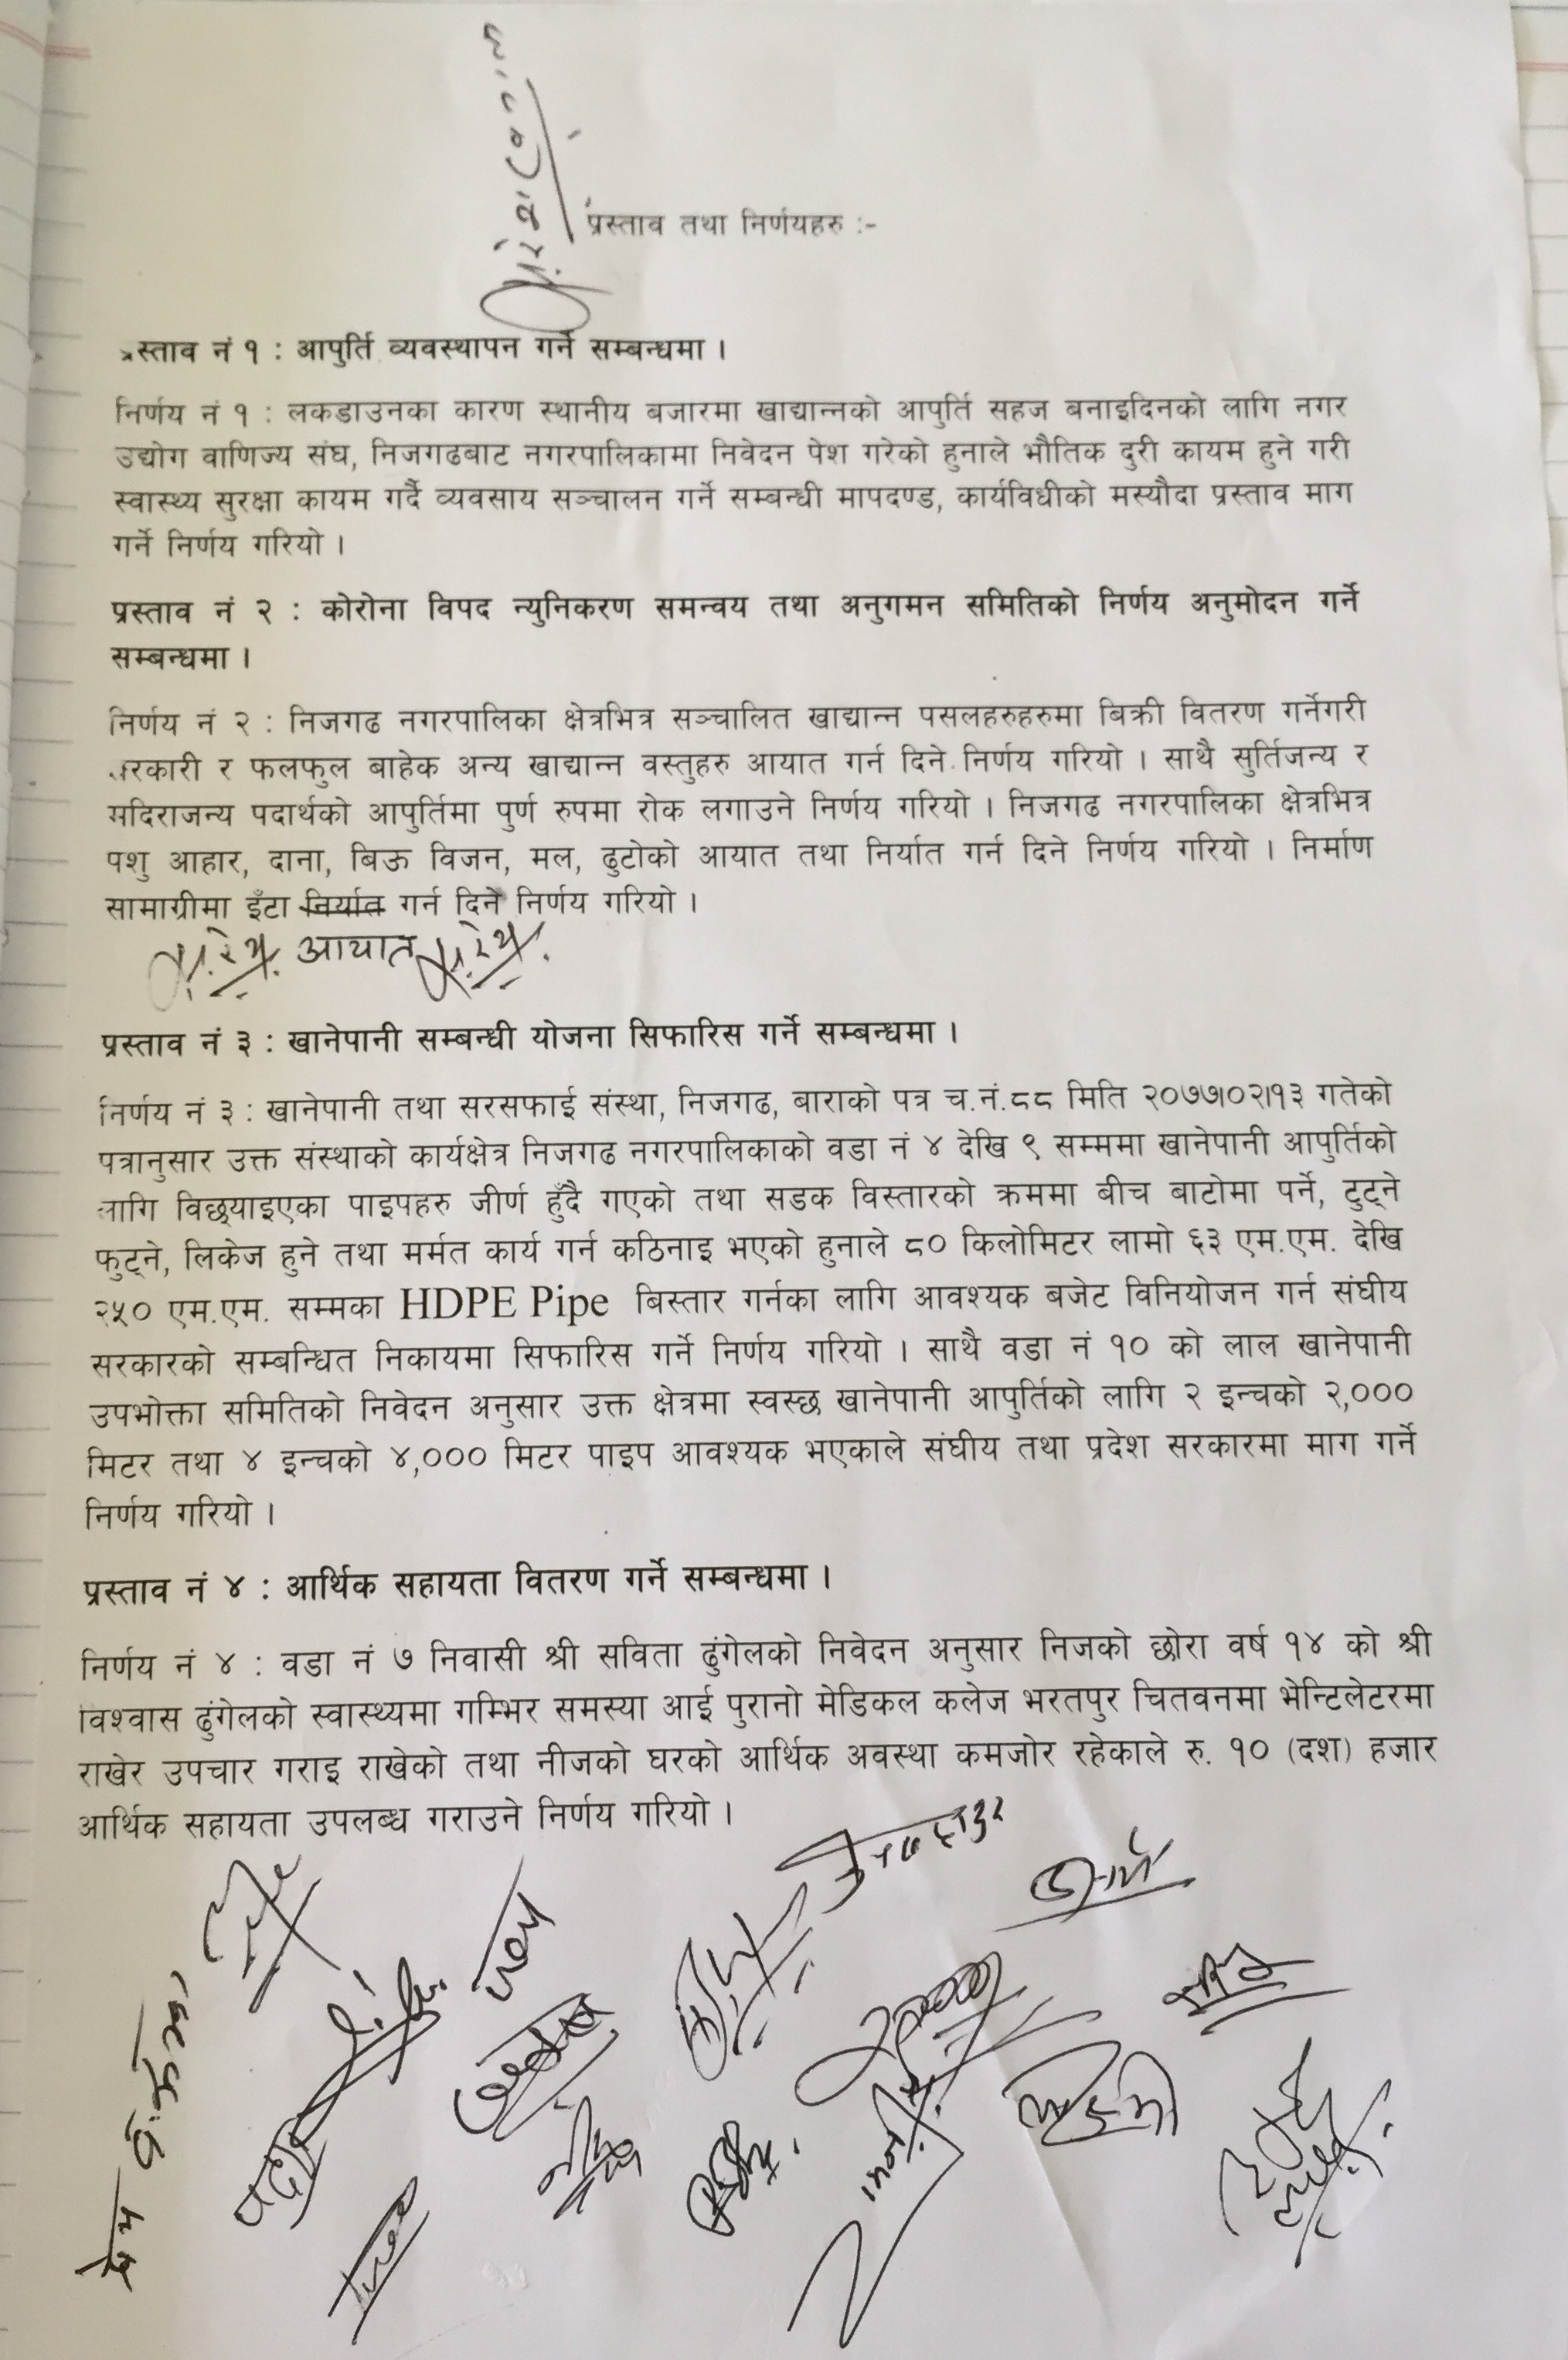 प्रस्ताव तथा निर्णयहरु :-
प्रस्ताव नं १ : आपुर्ति व्यवस्थापन गर्ने सम्बन्धमा ।
निर्णय नं १ : लकडाउनका कारण स्थानीय बजारमा खाद्यान्नको आपुर्ति सहज बनाइदिनको लागि नगर
उद्योग वाणिज्य संघ, निजगढबाट नगरपालिकामा निवेदन पेश गरेको हुनाले भौतिक दुरी कायम हुने गरी
स्वास्थ्य सुरक्षा कायम गर्दै व्यवसाय सञ्चालन गर्ने सम्बन्धी मापदण्ड, कार्यविधीको मस्यौदा प्रस्ताव माग
गर्ने निर्णय गरियो ।
प्रस्ताव नं २ : कोरोना विपद न्युनिकरण समन्वय तथा अनुगमन समितिको निर्णय अनुमोदन गर्ने
सम्बन्धमा ।
निर्णय नं २ : निजगढ नगरपालिका क्षेत्रभित्र सञ्चालित खाद्यान्न पसलहरुहरुमा बिक्री वितरण गर्नेगरी
तरकारी र फलफुल बाहेक अन्य खाद्यान्न वस्तुहरु आयात गर्न दिने निर्णय गरियो । साथै सुर्तिजन्य र
मदिराजन्य पदार्थको आपुर्तिमा पुर्ण रुपमा रोक लगाउने निर्णय गरियो । निजगढ नगरपालिका क्षेत्रभित्र
पशु आहार, दाना, बिऊ विजन, मल, ढुटोको आयात तथा निर्यात गर्न दिने निर्णय गरियो । निर्माण
सामाग्रीमा इँटा निर्यात गर्न दिने निर्णय गरियो ।
आयात
प्रस्ताव नं ३ : खानेपानी सम्बन्धी योजना सिफारिस गर्ने सम्बन्धमा ।
निर्णय नं ३ : खानेपानी तथा सरसफाई संस्था, निजगढ, बाराको पत्र च.नं.८८ मिति २०७७।०२।१३ गतेको
पत्रानुसार उक्त संस्थाको कार्यक्षेत्र निजगढ नगरपालिकाको वडा नं ४ देखि ९ सम्ममा खानेपानी आपुर्तिको
लागि विछ्याइएका पाइपहरु जीर्ण हुँदै गएको तथा सडक विस्तारको क्रममा बीच बाटोमा पर्ने, टुट्ने
फुट्ने, लिकेज हुने तथा मर्मत कार्य गर्न कठिनाइ भएको हुनाले ८० किलोमिटर लामो ६३ एम.एम. देखि
२५० एम.एम. सम्मका HDPE Pipe बिस्तार गर्नका लागि आवश्यक बजेट विनियोजन गर्न संघीय
सरकारको सम्बन्धित निकायमा सिफारिस गर्ने निर्णय गरियो । साथै वडा नं १० को लाल खानेपानी
उपभोक्ता समितिको निवेदन अनुसार उक्त क्षेत्रमा स्वस्छ खानेपानी आपुर्तिको लागि २ इन्चको २,०००
मिटर तथा ४ इन्चको ४,००० मिटर पाइप आवश्यक भएकाले संघीय तथा प्रदेश सरकारमा माग गर्ने
निर्णय गरियो ।
प्रस्ताव नं ४ : आर्थिक सहायता वितरण गर्ने सम्बन्धमा ।
निर्णय नं ४ : वडा नं ७ निवासी श्री सविता ढुंगेलको निवेदन अनुसार निजको छोरा वर्ष १४ को श्री
विश्वास ढुंगेलको स्वास्थ्यमा गम्भिर समस्या आई पुरानो मेडिकल कलेज भरतपुर चितवनमा भेन्टिलेटरमा
राखेर उपचार गराइ राखेको तथा नीजको घरको आर्थिक अवस्था कमजोर रहेकाले रु. १० (दश) हजार
आर्थिक सहायता उपलब्ध गराउने निर्णय गरियो ।